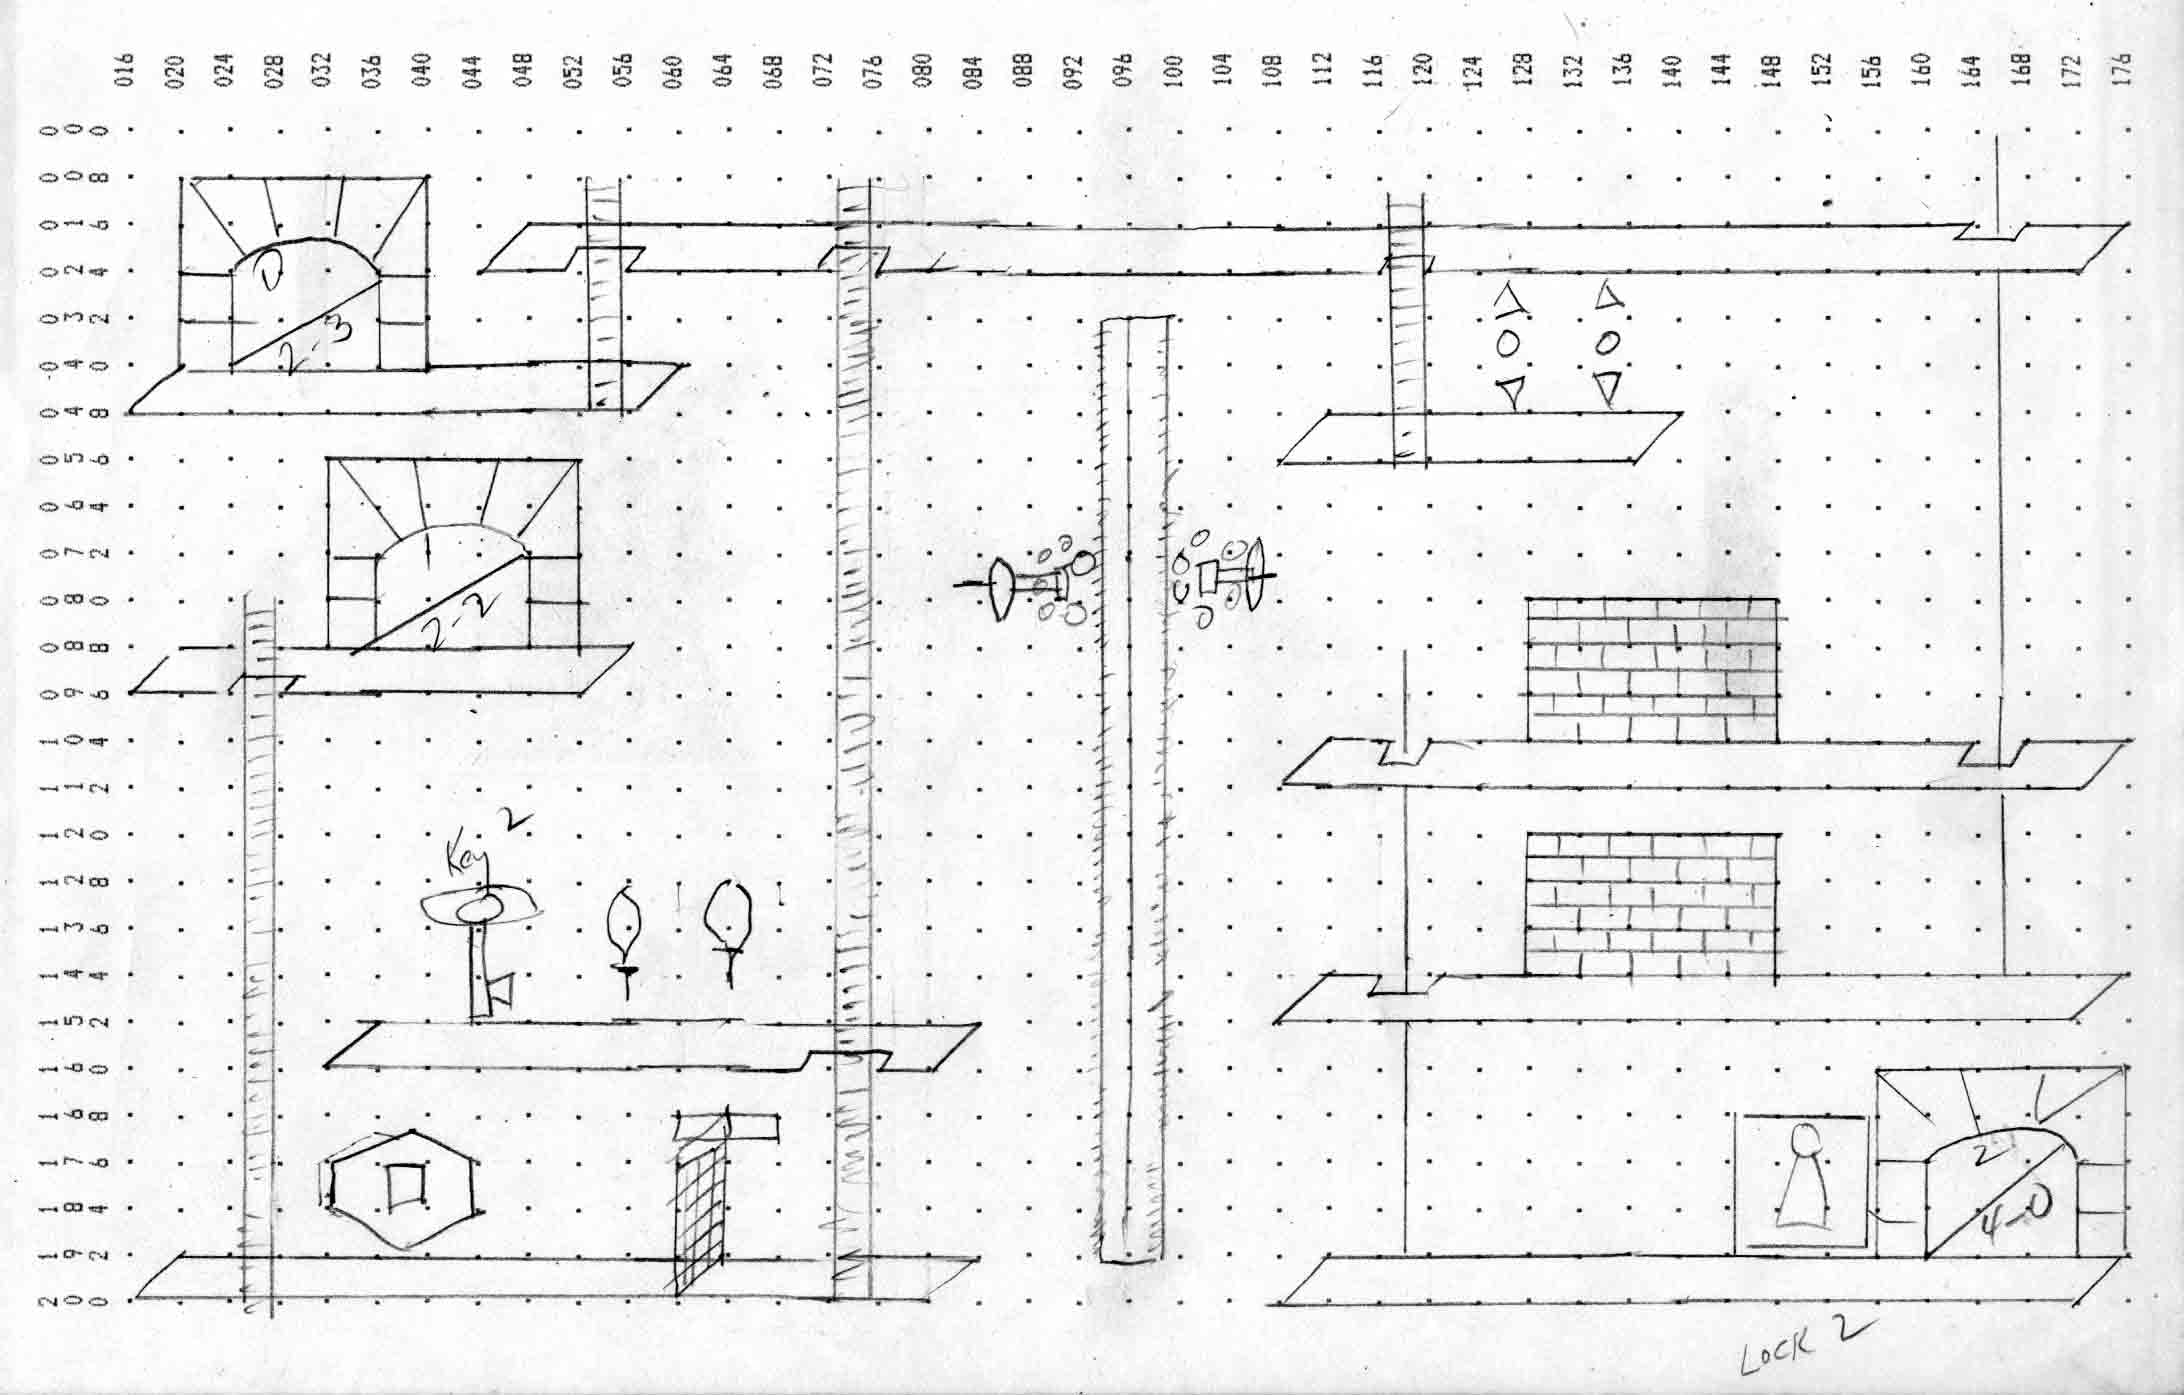 016 020 024 028 032 036 040 044 048 052 056 060 064 068 072 076 080 084 088 092 096 100 104 108 112 116 120 124 128 132 136 140 144 148 152 156 160 164 168 172 176
000
008
016
024
032
040
048
056
064
072
080
088
096
104
112
120
128
136
144
152
160
168
176
184
192
200
0
2-3
2-2
Key 2
2
4-0
LOCK 2